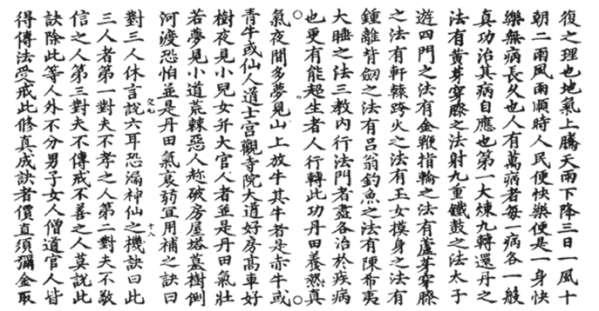 復之理也地氣上騰天雨下降三日一風十
朝二雨風雨順時人民便快樂便是一身快
樂無病長久也人有萬病者每一病各一般
真功治其病自應也第一大煉九轉還丹之
法有黃芽穿膝之法射九重鐵鼓之法太子
遊四門之法有金鞭指輪之法有蘆芽穿膝
之法有軒轅跨火之法有玉女摸身之法有
鍾離背劒之法有呂翁釣魚之法有陳希夷
大睡之法三教內行法門者盡各治於疾病
也更有能超生者人行轉此功丹田養㷛真
氣夜間多夢見山上放牛其牛者是赤牛或
青牛或仙人道士宮觀寺院大道好房高車好
樹夜見小兒女并大官人者並是丹田氣壯
若夢見小道荒棘惡人趂破房屋塔墓樹倒
河渡恐怕並是丹田氣衰弱宜用補之訣曰
對三人休言說六耳恐漏神仙之機訣曰此
三人者第一對夫不孝之人第二對夫不敬
信之人第三對夫不傳戒不善之人莫說此
訣除此等人外不分男子女人僧道官人皆
得傳法受戒此修真成訣者價直須彌金取